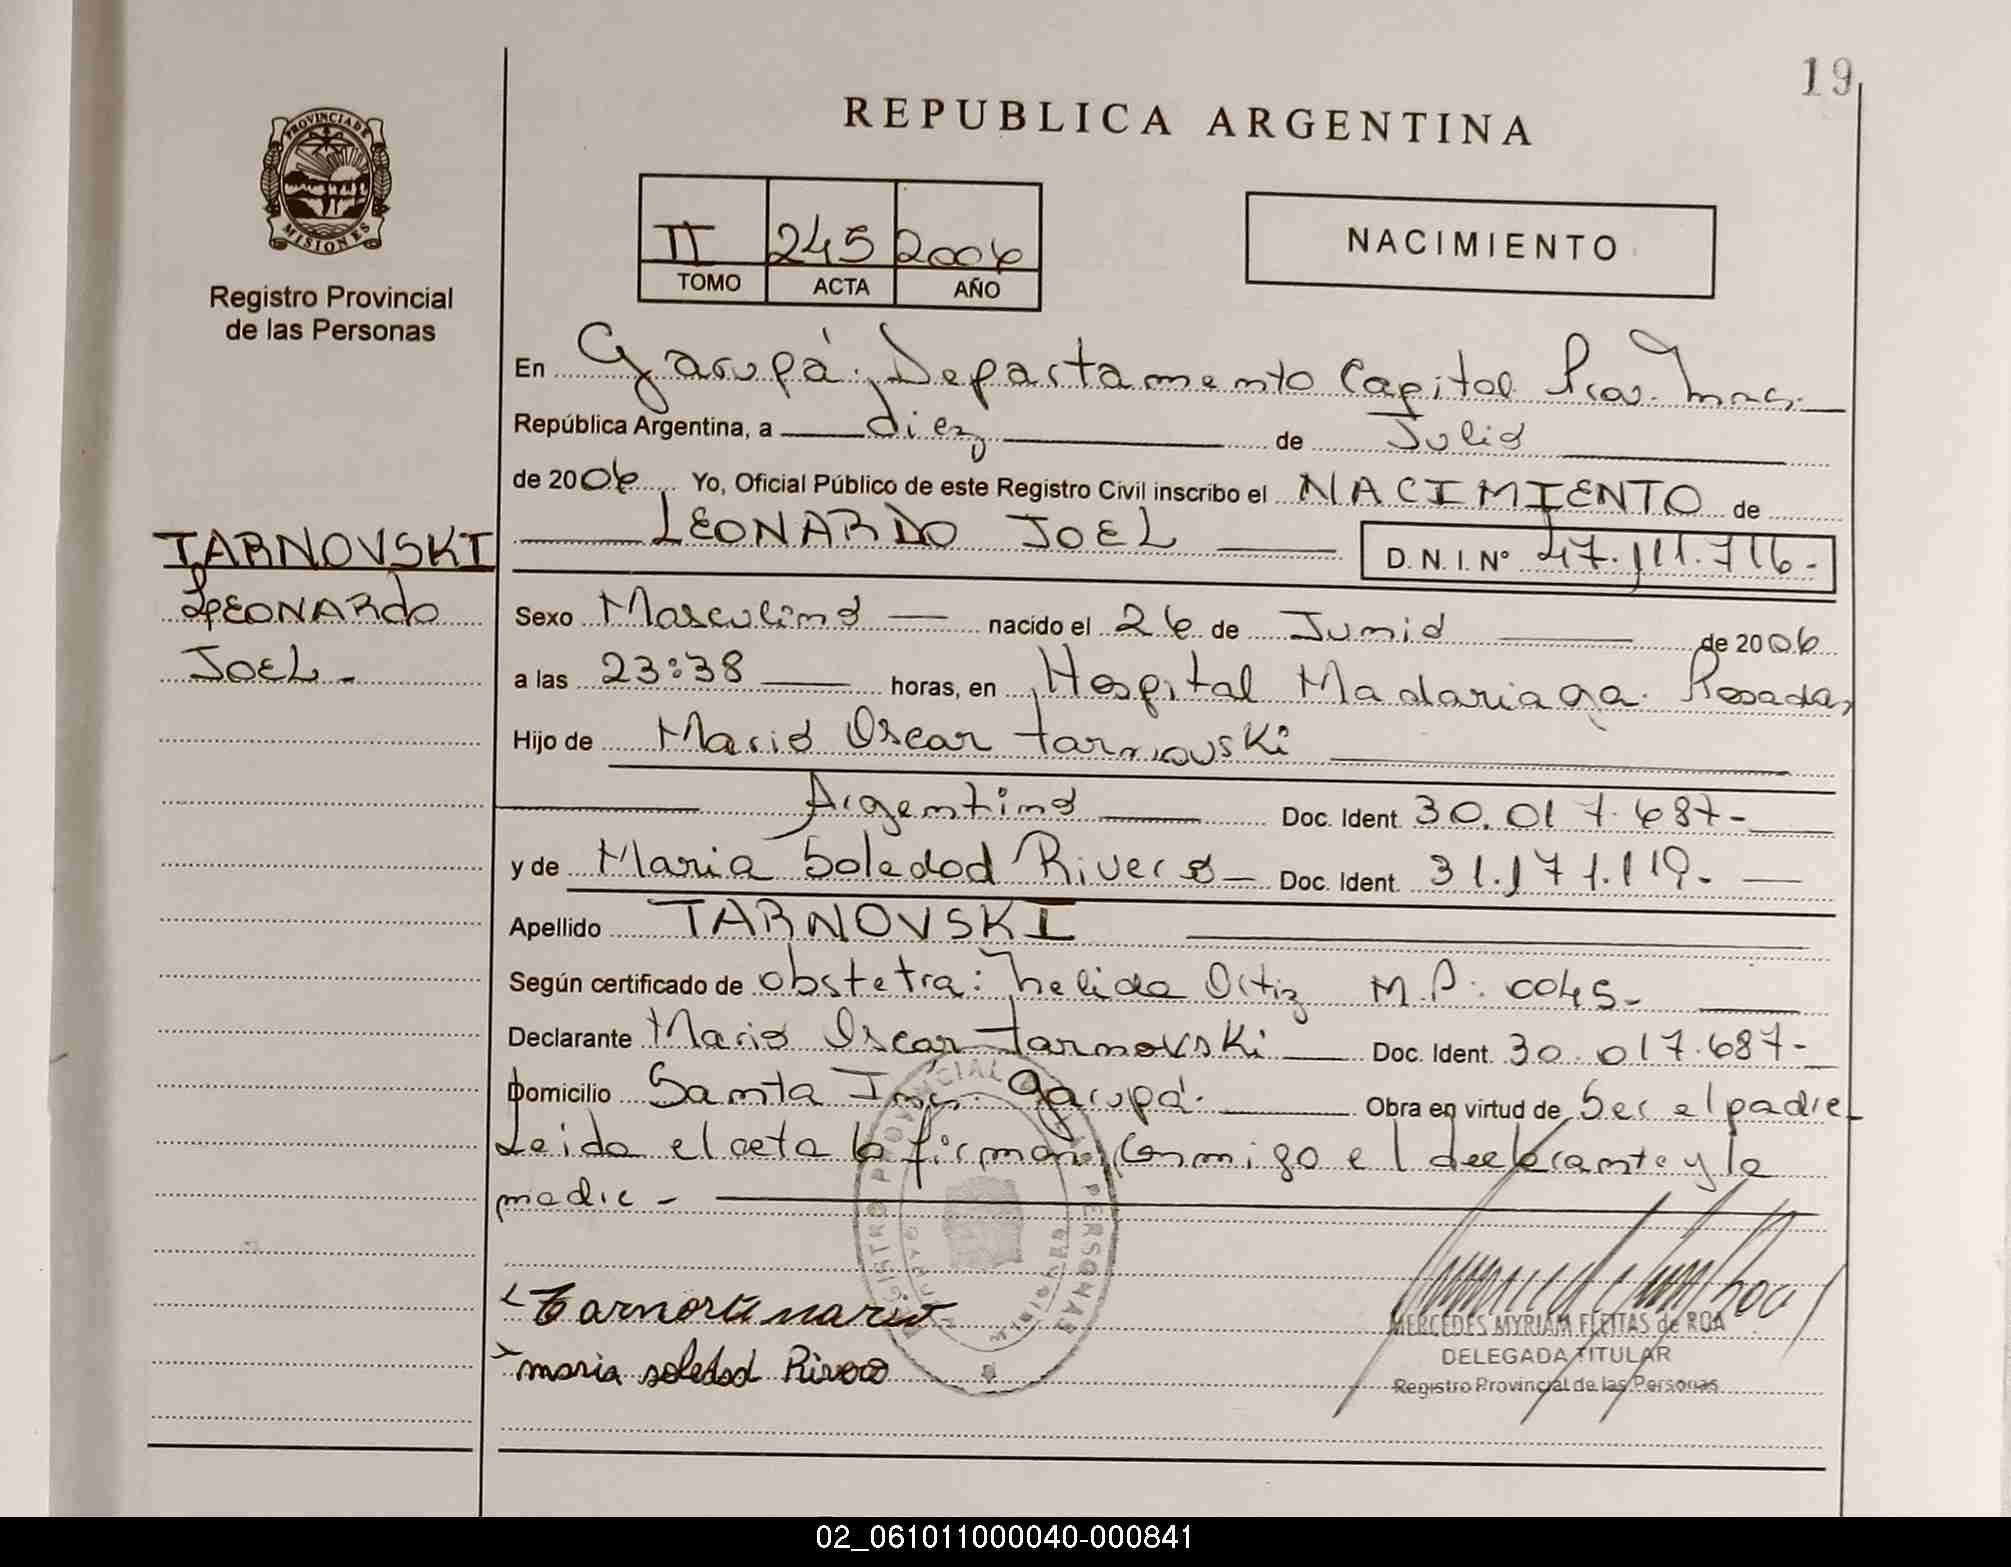 19
PROVINCIA DE
MISIONES
Registro Provincial
de las Personas
REPUBLICA ARGENTINA
II 245 2006
TOMO ACTA AÑO
NACIMIENTO
En Garupá, Departamento Capital Pcia. Mnes.
República Argentina, a diez de Julio
de 2006 Yo, Oficial Público de este Registro Civil inscribo el NACIMIENTO de
LEONARDO JOEL D. N. I. N° 47.111.716.-
TARNOVSKI
LEONARDO
JOEL.-
Sexo Masculino nacido el 26 de Junio de 2006
a las 23:38 horas, en Hospital Madariaga. Posadas
Hijo de Mario Oscar Tarnovski
Argentino Doc. Ident. 30.017.687-
y de Maria Soledad Rivero Doc. Ident. 31.171.119.-
Apellido TARNOVSKI
Según certificado de obstetra: Nelida Ortiz M.P: 0045-
Declarante Mario Oscar Tarnovski Doc. Ident. 30.017.687-
Domicilio Santa Inés. Garupá. Obra en virtud de Ser el padre
Leida el acta la firman conmigo el declarante y la
madre -
REGISTRO PROVINCIAL DE LAS PERSONAS
maria soledad Rivero
MERCEDES MYRIAM FLEITAS de ROA
DELEGADA TITULAR
Registro Provincial de las Personas
02_061011000040-000841